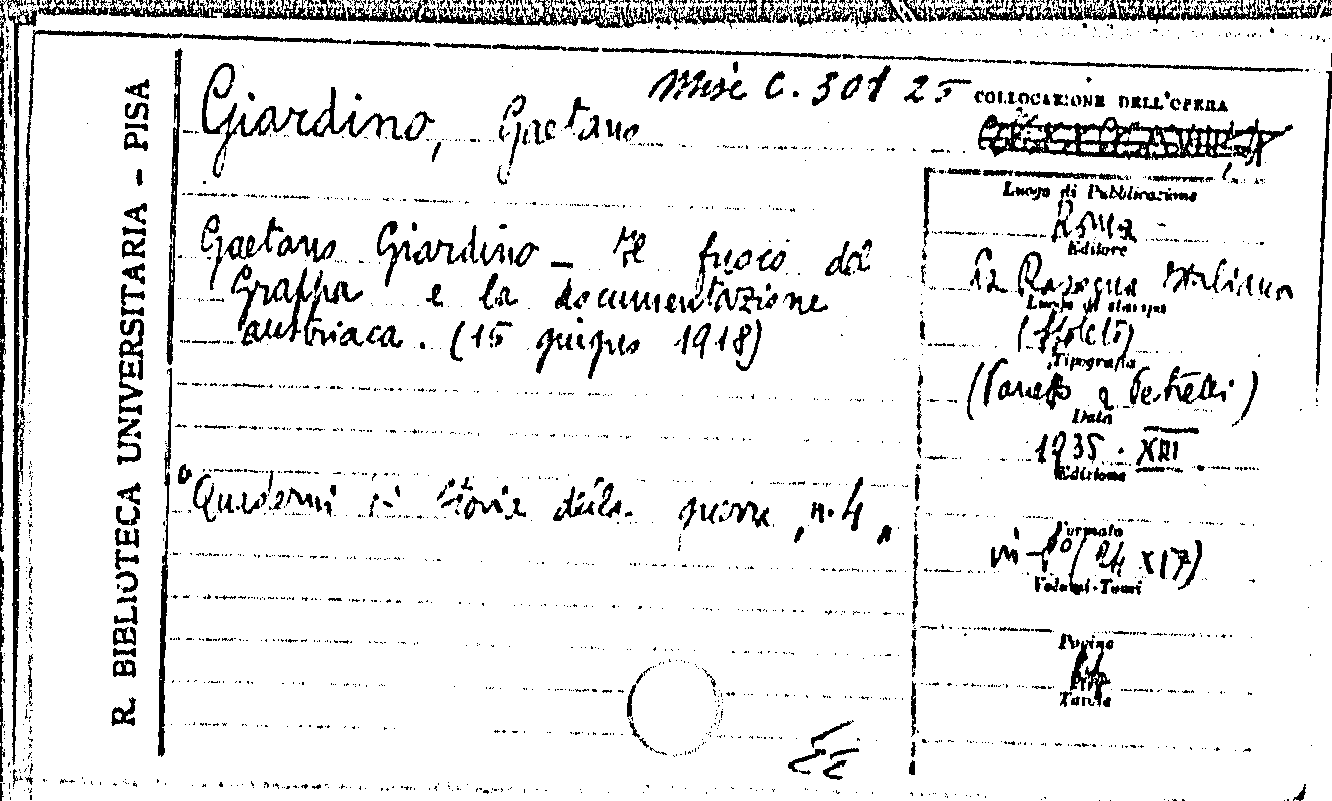 R. BIBLIOTECA UNIVERSITARIA - PISA
Misc C. 301 25
COLLOCAZIONE DELL'OPERA
Giardino, Gaetano
Gaetano Giardino – Il fuoco del
Grappa e la documentazione
austriaca. (15 giugno 1918)
Quaderni di storia della guerra, n. 4
Luogo di Pubblicazione
Roma
Editore
La Rassegna Italiana
Luogo di stampa
(Spoleto)
Tipografia
(Panetto e Petrelli)
Data
1935 - XIII
Edizione
Formato
in-8° (24 x 17)
Volumi-Tomi
Pagine
Tavole